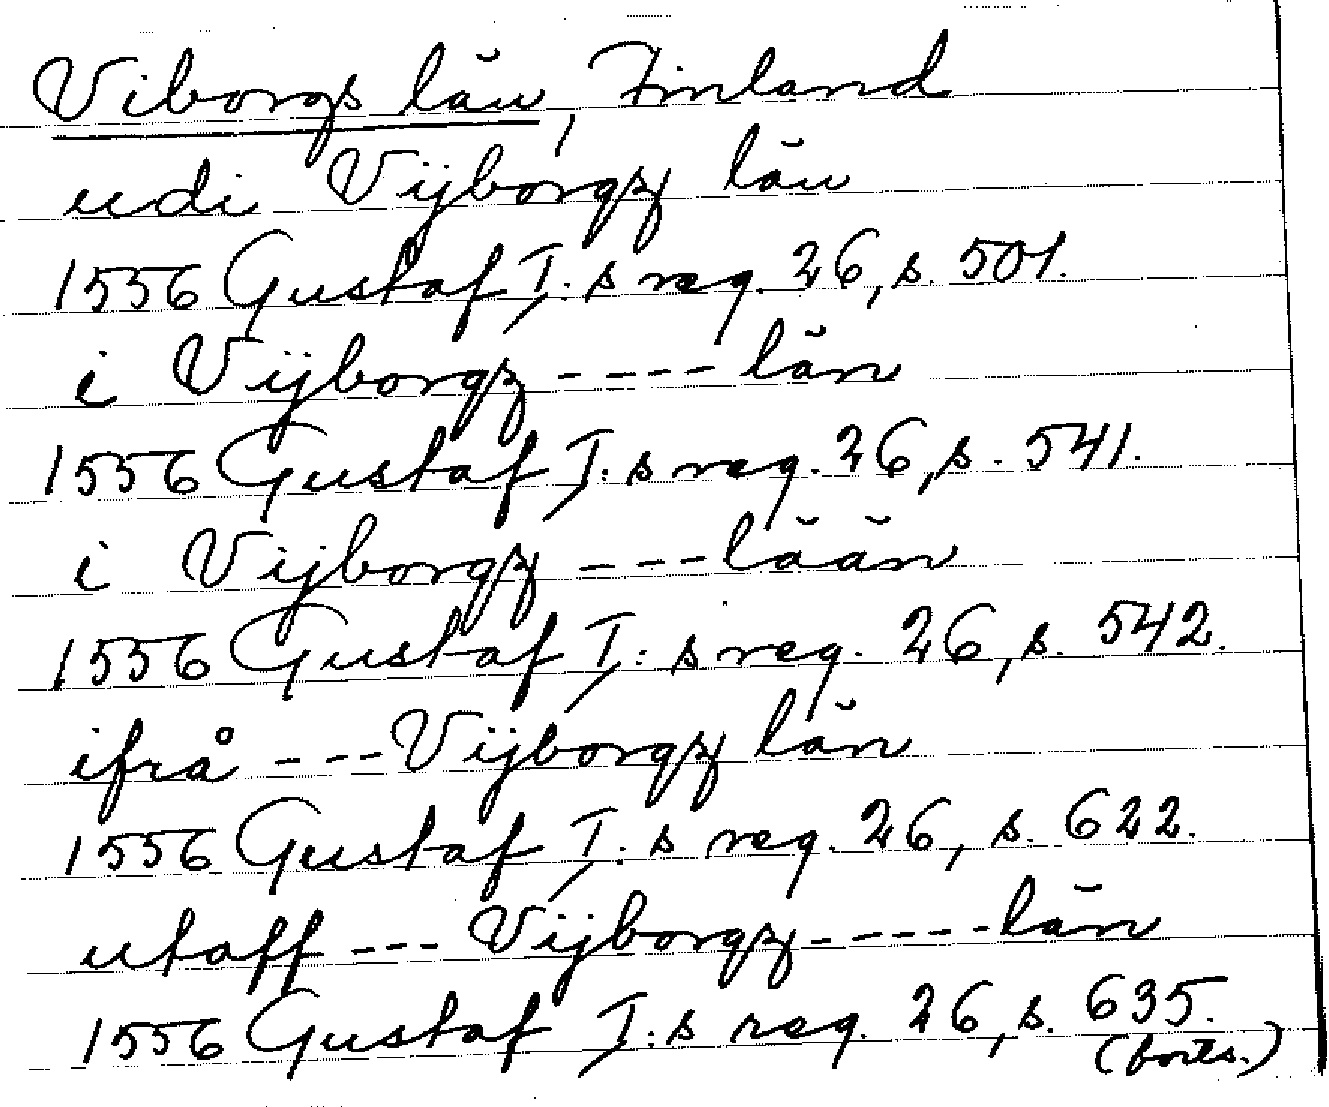 Viborgs län, Finland
udi Vijborgz län
1556 Gustaf I:s reg. 26, s. 501.
i Vijborgz ---- län
1556 Gustaf I:s reg. 26, s. 541.
i Vijborgz --- lään
1556 Gustaf I:s reg. 26, s. 542.
ifrå --- Vijborgz län
1556 Gustaf I:s reg. 26, s. 622.
utaff --- Vijborgz ----- län
1556 Gustaf I:s reg. 26, s. 635.
(forts.)